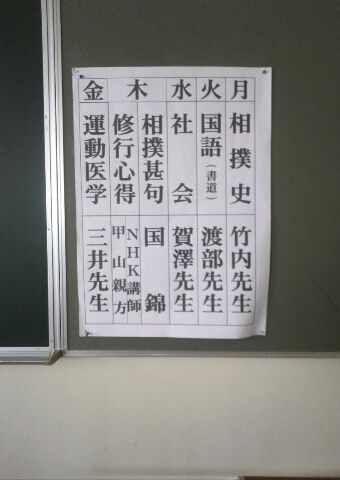 月
相撲史
竹内先生
火
国語(書道)
渡部先生
水
社会
賀澤先生
木
相撲甚句
国錦
修行心得
NHK講師
甲山親方
金
運動医学
三井先生